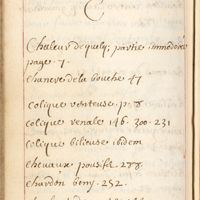 C
Chaleur de quelq; partie immoderée
page 7.
chancre de la bouche 47
colique venteuse. p. 8
colique venale 146. 300. 231
colique bilieuse ibidem
chevaux pous.f. 278.
chardon beny. 252.